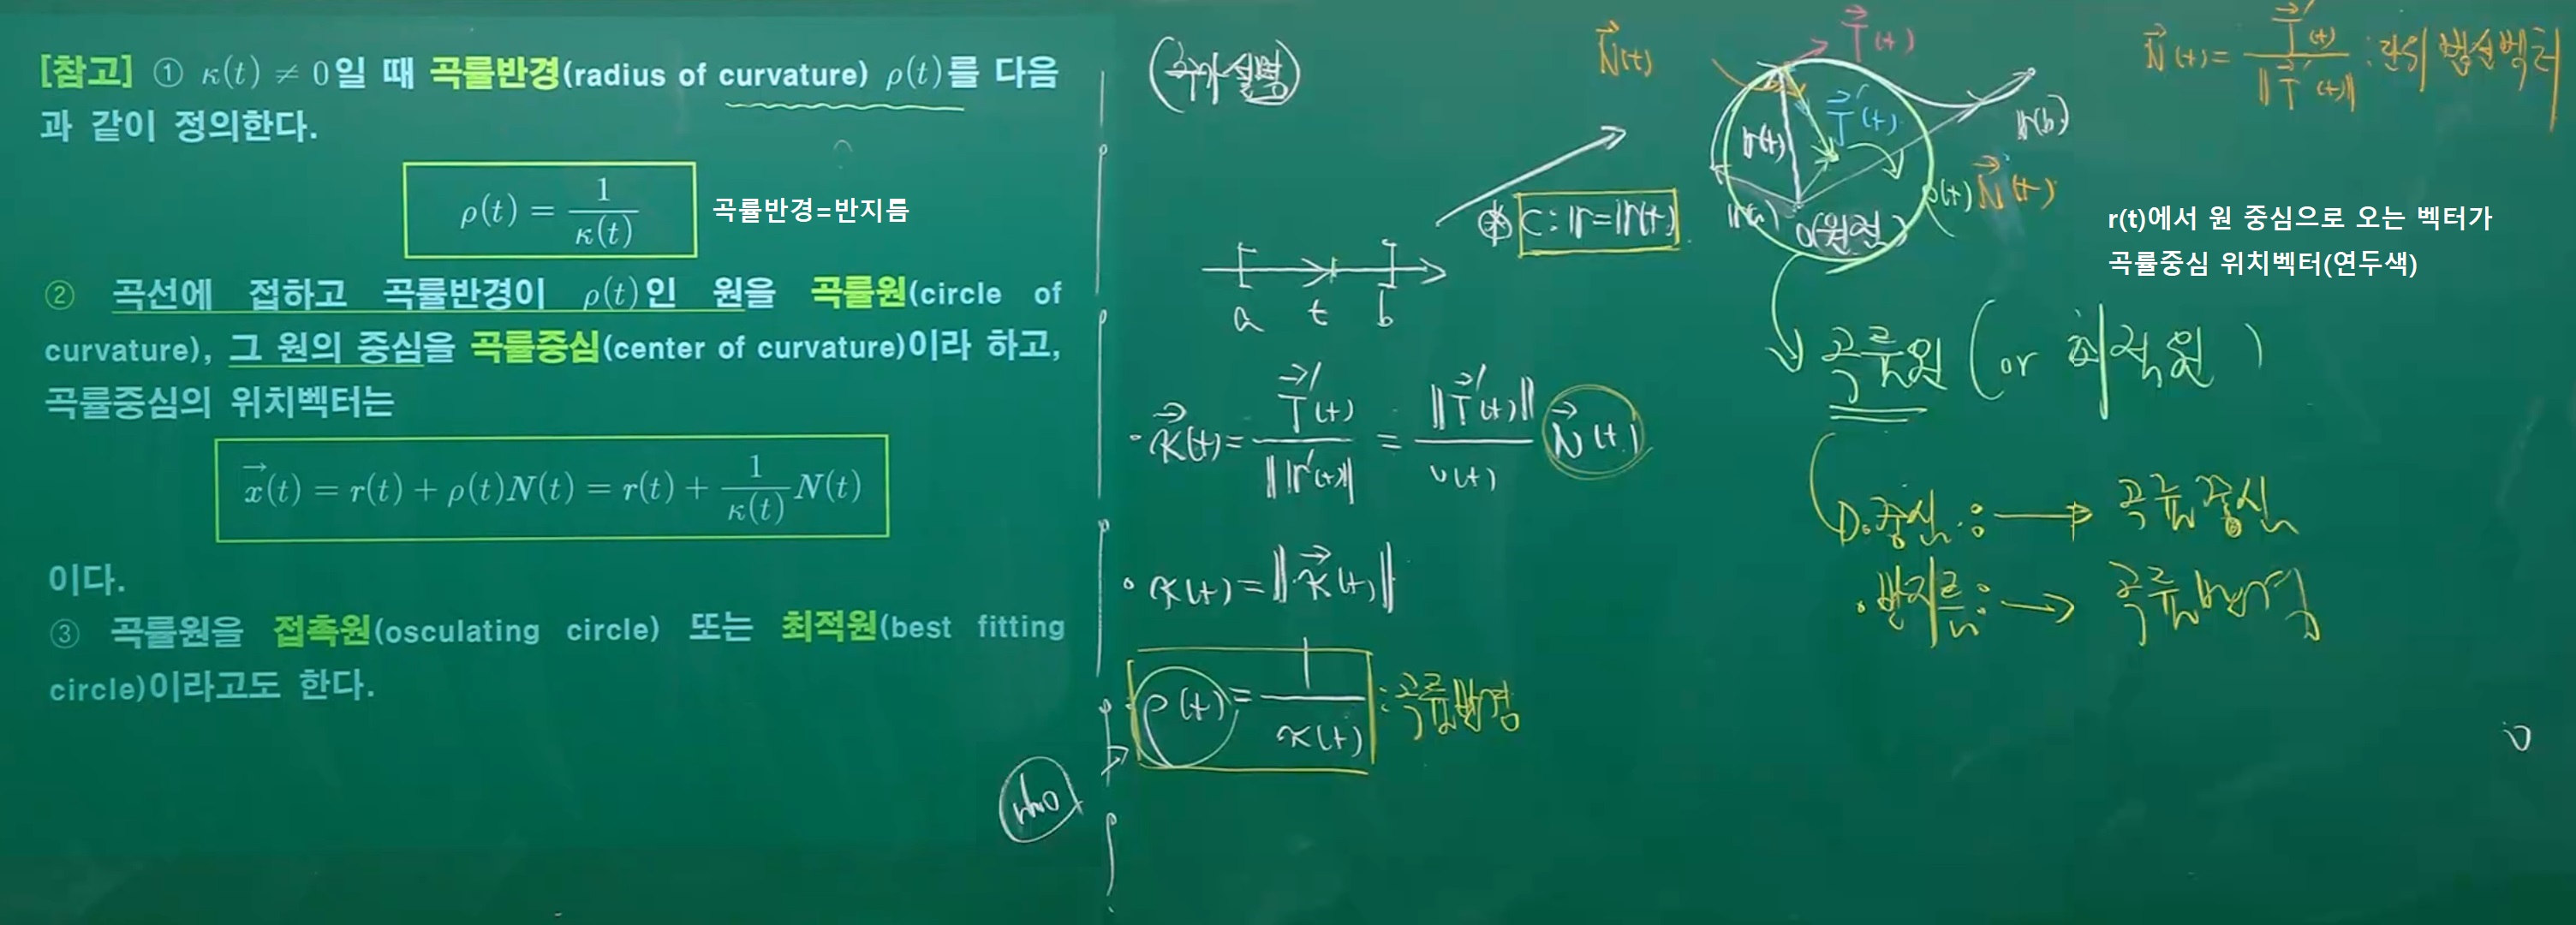 [참고] ① κ(t) ≠ 0일 때 곡률반경(radius of curvature) ρ(t)를 다음
과 같이 정의한다.
ρ(t) = 1/κ(t)
곡률반경=반지름
② 곡선에 접하고 곡률반경이 ρ(t)인 원을 곡률원(circle of
curvature), 그 원의 중심을 곡률중심(center of curvature)이라 하고,
곡률중심의 위치벡터는
x⃗(t) = r(t) + ρ(t)N(t) = r(t) + 1/κ(t) N(t)
이다.
③ 곡률원을 접촉원(osculating circle) 또는 최적원(best fitting
circle)이라고도 한다.
(추가설명)
a t b
※ C : r = r(t)
κ⃗(t) = T⃗'(t)/‖r'(t)‖ = ‖T⃗'(t)‖/v(t) N⃗(t)
κ(t) = ‖κ⃗(t)‖
ρ(t) = 1/κ(t) : 곡률반경
rho
N⃗(t)
T⃗(t)
T⃗'(t)
r(t)
r(b)
r(a)
O(원점)
ρ(t) N⃗(t)
N⃗(t) = T⃗'(t)/‖T⃗'(t)‖ : 단위 법선벡터
r(t)에서 원 중심으로 오는 벡터가
곡률중심 위치벡터(연두색)
곡률원 (or 최적원)
중심 : → 곡률중심
반지름 : → 곡률반경